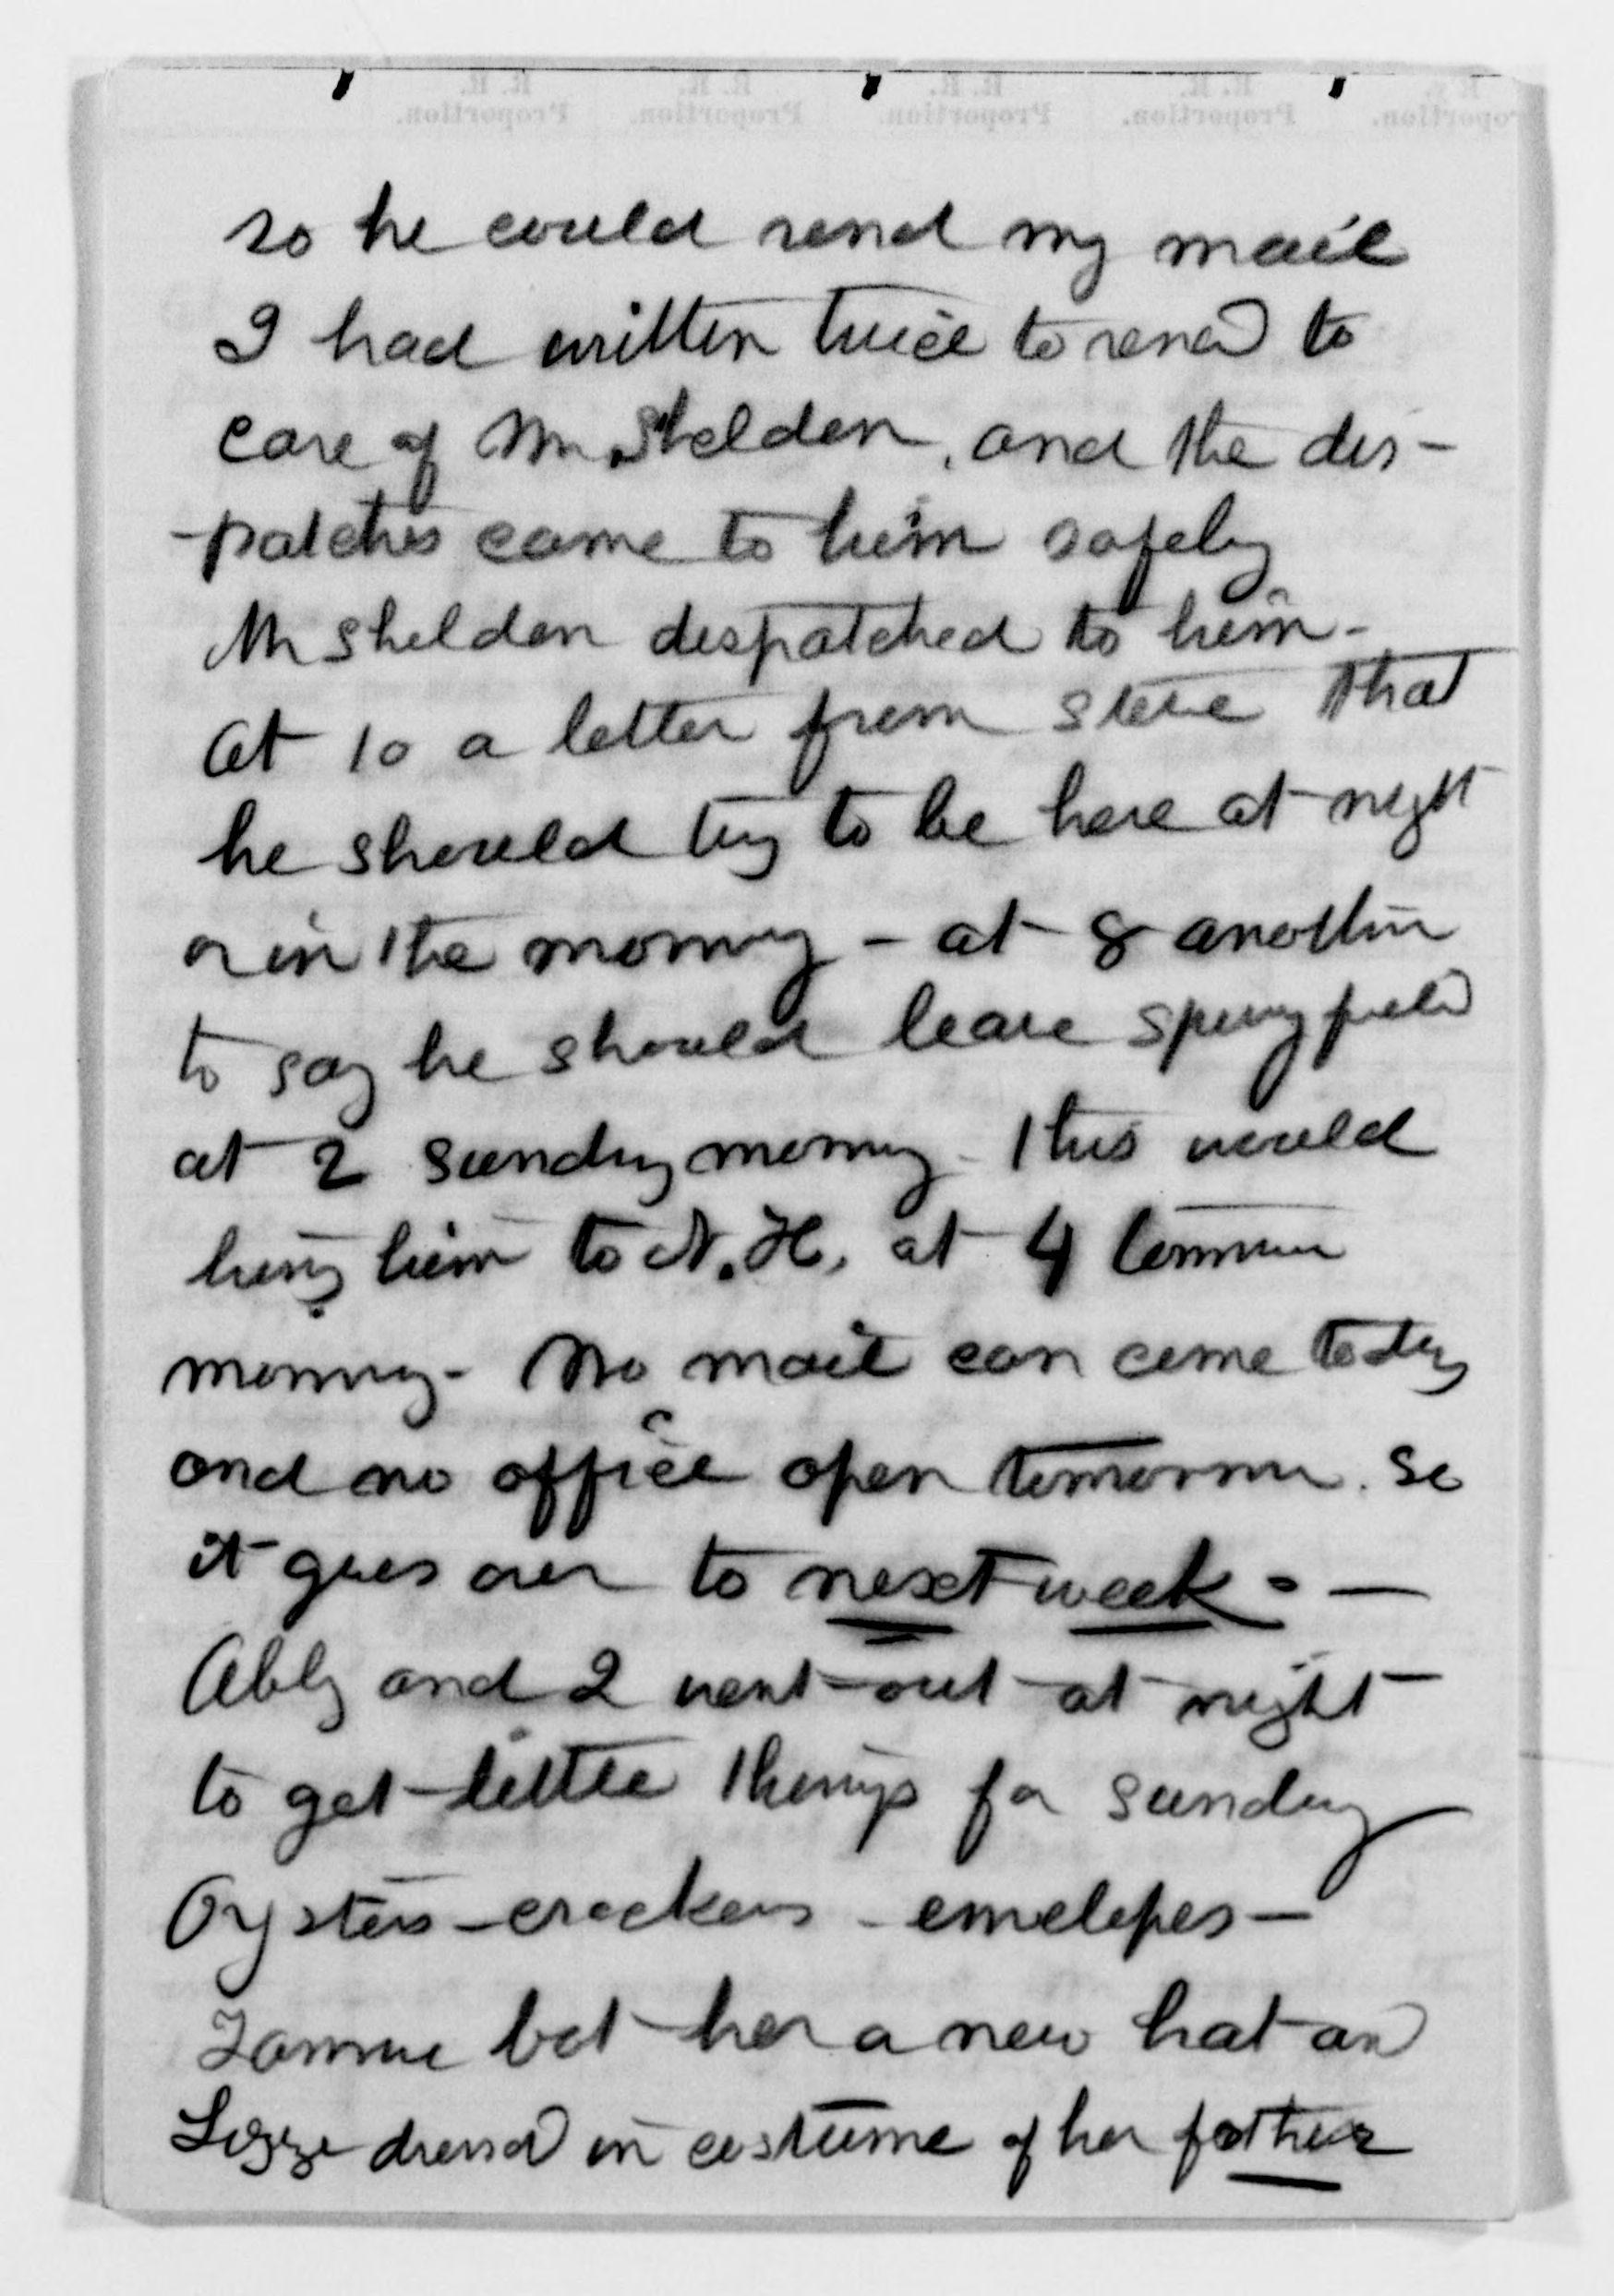 R. R. Proportion. R. R. Proportion. R. R. Proportion. R. R. Proportion.
so he could send my mail
I had written twice to send to
care of Mr. Sheldon, and the dis-
-patches came to him safely
Mr Sheldon despatched to him -
At 10 a letter from Steve that
he should try to be here at night
or in the morning - at 8 another
to say he should leave Springfield
at 2 Sunday morning - this would
bring him to N. H. at 4 tomorrow
morning - No mail can come today
and no office open tomorrow. So
it goes over to next week - —
Ably and I went out at night
to get little things for Sunday
Oysters - crackers - envelopes -
Fannie bot her a new hat and
Lizzie dressed in costume of her father